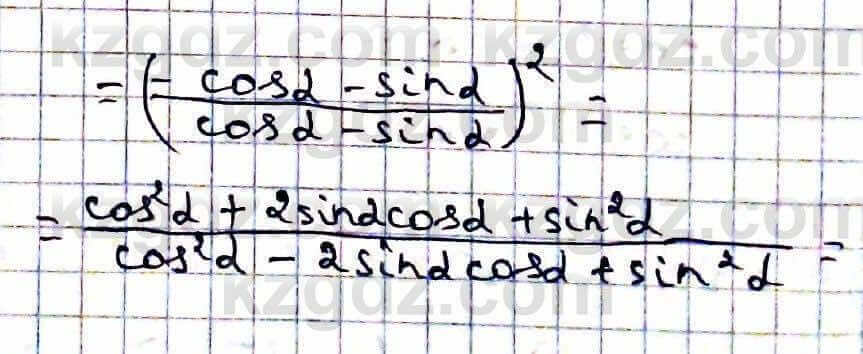 kzgdz.com kzgdz.com
= (-cosα - sinα / cosα - sinα)² =
kzgdz.com
= cos²α + 2sinαcosα + sin²α / cos²α - 2sinαcosα + sin²α =
kzgdz.com